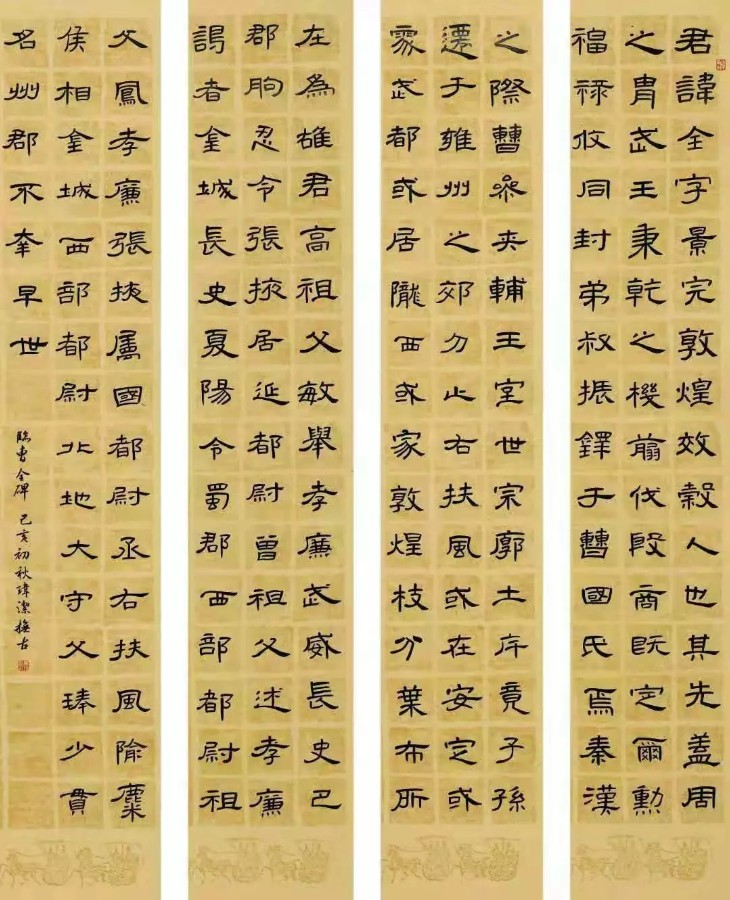 君諱全字景完敦煌效穀人也其先蓋周
之胄武王秉乾之機翦伐殷商既定爾勳
福祿攸同封弟叔振鐸于曹國氏焉秦漢
之際曹參夾輔王室世宗廓土斥竟子孫
遷于雍州之郊分止右扶風或在安定或
處武都或居隴西或家敦煌枝分葉布所
在為雄君高祖父敏舉孝廉武威長史巴
郡朐忍令張掖居延都尉曾祖父述孝廉
謁者金城長史夏陽令蜀郡西部都尉祖
父鳳孝廉張掖屬國都尉丞右扶風隃麋
侯相金城西部都尉北地大守父琫少貫
名州郡不幸早世
臨曹全碑 己亥初秋瑋潔撫古